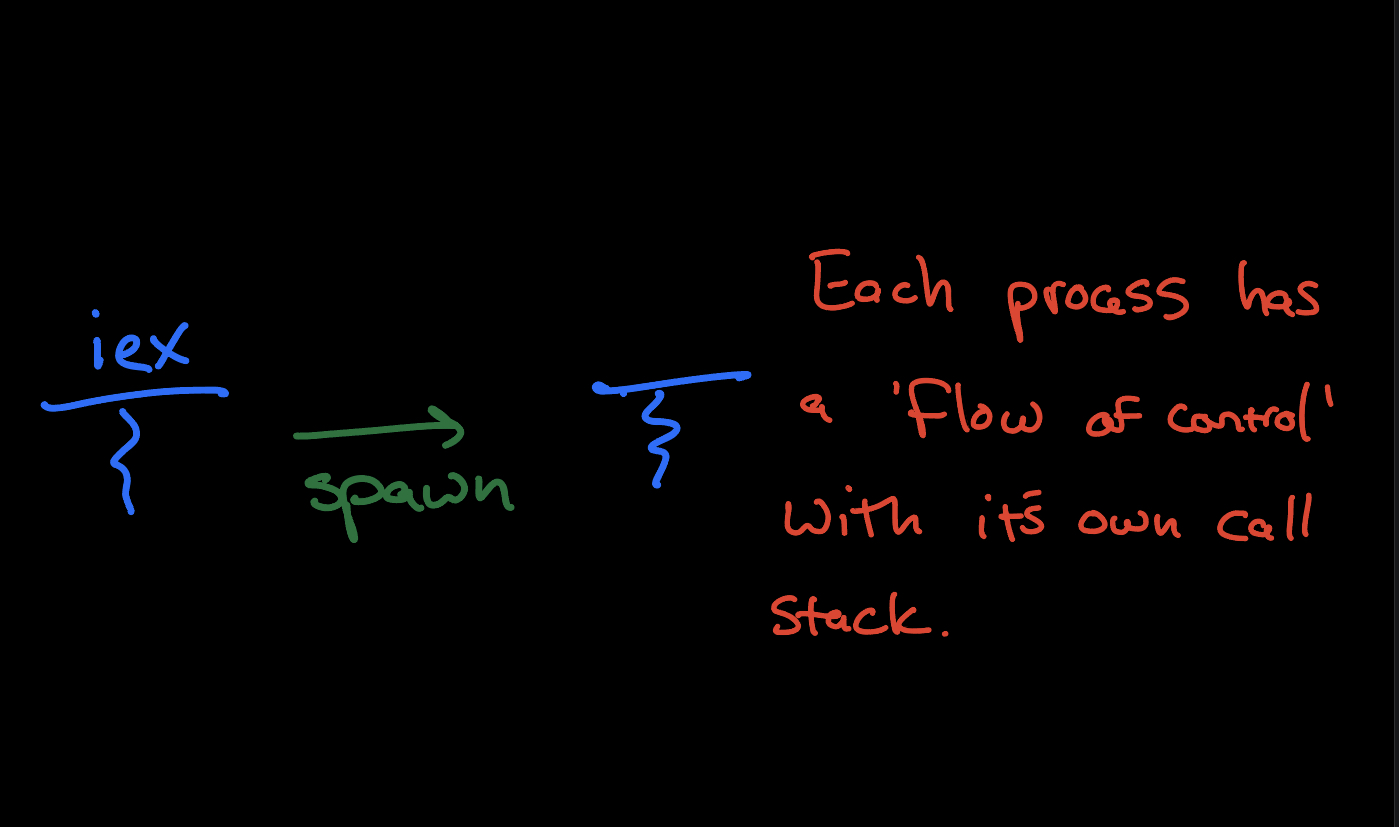 iex
spawn
Each process has
a 'flow of control'
with it's own call
stack.